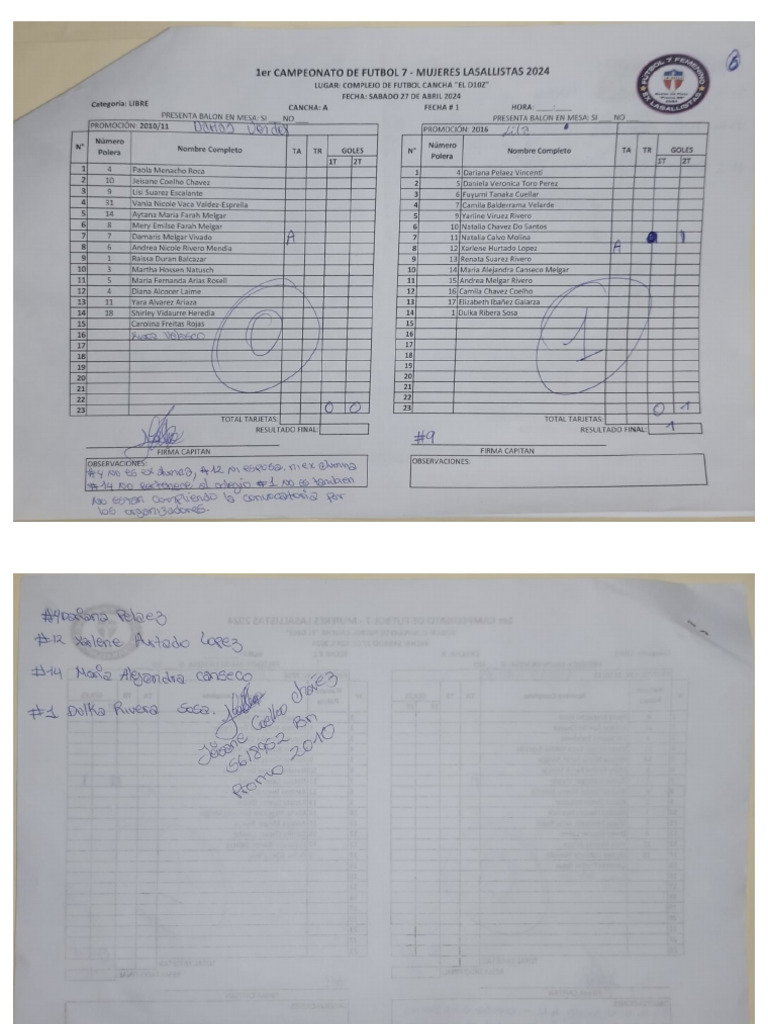 1er CAMPEONATO DE FUTBOL 7 - MUJERES LASALLISTAS 2024
LUGAR: COMPLEJO DE FUTBOL CANCHA "EL O10Z"
FECHA: SABADO 27 DE ABRIL 2024
FUTBOL 7 FEMENINO
EX LASALLISTAS
Categoria: LIBRE
CANCHA: A
FECHA # 1
HORA: ____:____
PRESENTA BALON EN MESA: SI ___ NO ___
PROMOCIÓN: 2010/11
N° Número Polera Nombre Completo TA TR GOLES
1T 2T
1 4 Paola Menacho Roca
2 10 Jeisane Coelho Chavez
3 9 Lisi Suarez Escalante
4 31 Vania Nicole Vaca Valdez-Esprella
5 14 Aytana Maria Farah Melgar
6 8 Mery Emilse Farah Melgar
7 7 Damaris Melgar Vivado A
8 6 Andrea Nicole Rivero Mendia
9 1 Raissa Duran Balcazar
10 3 Martha Hossen Natusch
11 5 Maria Fernanda Arias Rosell
12 4 Diana Alcocer Laime
13 11 Yara Alvarez Ariaza
14 18 Shirley Vidaurre Heredia
15 Carolina Freitas Rojas
16 Velasco
17
18
19
20
21
22
23 0 0
0
TOTAL TARJETAS:
RESULTADO FINAL:
FIRMA CAPITAN
OBSERVACIONES:
#4 No es ex alumna, #12 ni esposa, ni ex alumna
#14 No pertenece al colegio #1 No es tambien
No estan cumpliendo la convocatoria por
los organizadores.
PRESENTA BALON EN MESA: SI ___ NO ___
PROMOCIÓN: 2016 Lila
N° Número Polera Nombre Completo TA TR GOLES
1T 2T
1 4 Dariana Pelaez Vincenti
2 5 Daniela Veronica Toro Perez
3 6 Fuyumi Tanaka Cuellar
4 7 Camila Balderrama Velarde
5 9 Yarline Viruez Rivero
6 10 Natalia Chavez Do Santos
7 11 Natalia Calvo Molina 1
8 12 Xarlene Hurtado Lopez A
9 13 Renata Suarez Rivero
10 14 Maria Alejandra Canseco Melgar
11 15 Andrea Melgar Rivero
12 16 Camila Chavez Coelho
13 17 Elizabeth Ibañez Galarza
14 1 Dulka Ribera Sosa
15
16
17
18
19
20
21
22
23 0 1
1
TOTAL TARJETAS:
RESULTADO FINAL: 1
#9
FIRMA CAPITAN
OBSERVACIONES:
#4 Dariana Pelaez
#12 Xarlene Hurtado Lopez
#14 Maria Alejandra Canseco
#1 Dulka Rivera Sosa.
Jeisane Coelho Chávez
5618952 BN
Promo 2010